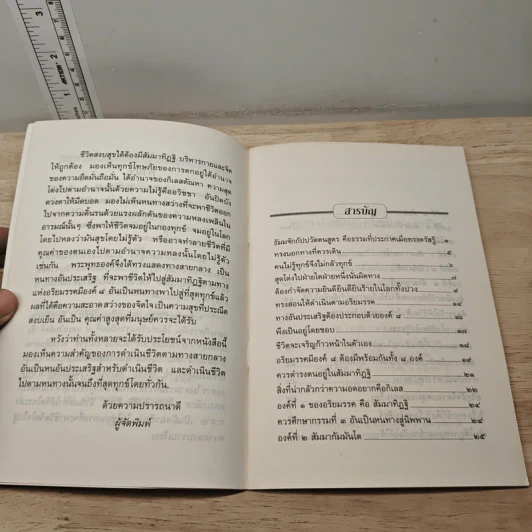 ชีวิตสงบสุขได้ต้องมีสัมมาทิฏฐิ บริหารกายและจิต
ให้ถูกต้อง มองเห็นทุกข์โทษภัยของการตกอยู่ใต้อำนาจ
ของความยึดมั่นถือมั่น ใต้อำนาจของกิเลสตัณหา ความสุด
โต่งไปตามอำนาจนั้นด้วยความไม่รู้คืออวิชชา อันปิดบัง
ดวงตาให้มืดบอด มองไม่เห็นหนทางสว่างที่จะพาชีวิตออก
ไปจากความดิ้นรนด้วยแรงผลักดันของความหลงเพลินใน
อารมณ์นั้นๆ ซึ่งพาให้ชีวิตจมอยู่ในกองทุกข์ จมอยู่ในโลก
โดยไปหลงว่ามันสุขโดยไม่รู้ตัว หรืออาจทำลายชีวิตที่มี
คุณค่าของตนเองไปตามอำนาจความหลงนั้นโดยไม่รู้ตัว
เช่นกัน พระพุทธองค์จึงได้ทรงแสดงทางสายกลาง เป็น
หนทางอันประเสริฐ ที่จะพาชีวิตให้ไปสู่สัมมาทิฏฐิตามทาง
แห่งอริยมรรคมีองค์ ๘ อันเป็นหนทางพาไปสู่ที่สุดทุกข์แล้ว
ผลที่ได้คือความสะอาด สว่างของจิตใจ เป็นความสุขที่ประณีต
สงบเย็น อันเป็น คุณค่าสูงสุดที่มนุษย์ควรจะได้รับ
หวังว่าท่านทั้งหลายจะได้รับประโยชน์จากหนังสือนี้
มองเห็นความสำคัญของการดำเนินชีวิตตามทางสายกลาง
อันเป็นหนทางอันประเสริฐสำหรับดำเนินชีวิต และดำเนินชีวิต
ไปตามหนทางนั้นจนถึงที่สุดทุกข์โดยทั่วกัน.
ด้วยความปรารถนาดี
ผู้จัดพิมพ์
สารบัญ
ธัมมจักกัปปวัตตนสูตร คือธรรมที่ประกาศเมื่อทรงตรัสรู้
ทรงบอกทางที่ควรเดิน
คนไม่รู้ทุกข์จึงไม่กลัวทุกข์
สุดโต่งไปฝ่ายใดฝ่ายหนึ่งนั้นผิดทาง
ต้องกำจัดความยินดียินดียินร้ายในโลกทั้งปวง
ทรงสอนให้ดำเนินตามอริยมรรค ๑๔
ทางอันประเสริฐต้องประกอบด้วยองค์ ๘
พึงเป็นอยู่โดยชอบ ๑๗
ชีวิตจะเจริญก้าวหน้าในตัวเอง ๑๘
อริยมรรคมีองค์ ๘ ต้องมีพร้อมกันทั้ง ๘ องค์
ควรดำรงตนอยู่ในสัมมาทิฏฐิ
สิ่งที่น่ากลัวกว่าความอดอยากคือกิเลส ๒๒
องค์ที่ ๑ ของอริยมรรค คือ สัมมาทิฏฐิ ๒๔
ควรศึกษากรรมที่ ๓ อันเป็นหนทางสู่นิพพาน ๒๔
องค์ที่ ๒ สัมมากัมมันโต ๒๕